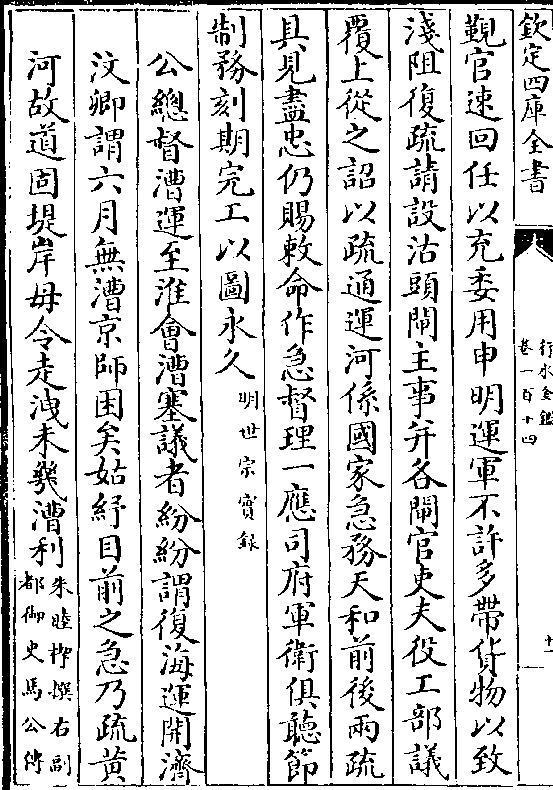 欽定四庫全書
行水金鑑
卷一百十四
十一
觀官速回任以充委用申明運軍不許多帶貨物以致
淺阻復疏請設沽頭閘主事并各閘官吏夫役工部議
覆上從之詔以疏通運河係國家急務天和前後兩疏
具見盡忠仍賜敕命作急督理一應司府軍衛俱聽節
制務刻期完工以圖永久明世宗實録
公總督漕運至淮會漕塞議者紛紛謂復海運開濟
汶卿謂六月無漕京師困矣姑紓目前之急乃疏黄
河故道固堤岸毋令走洩未幾漕利朱睦㮮撰右副
都御史馬公傳